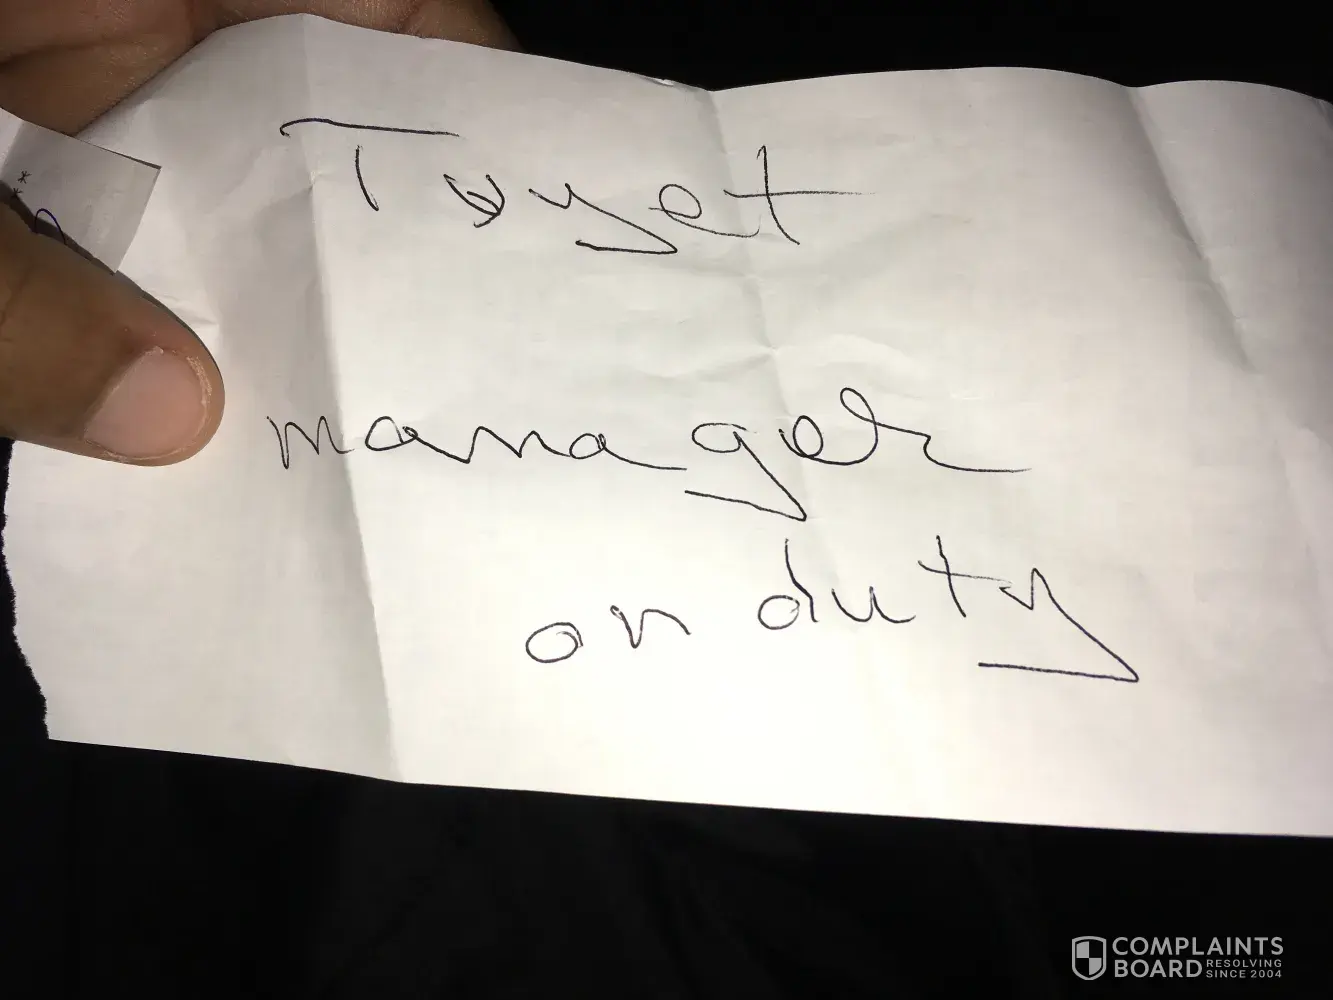 Toyet
manager
on duty
**
COMPLAINTS
BOARD RESOLVING
SINCE 2004